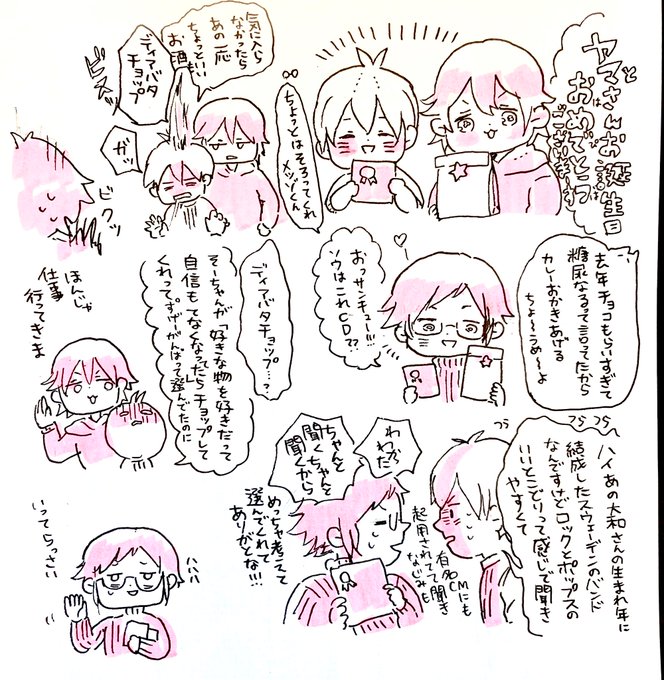 ヤマさんお誕生日
おめでとう
ございます
ちょっとはそろってくれ
メッゾくん
気に入ら
なかったら
あの一応
ちょっといい
お酒
ディアバタ
チョップ
ビスッ
ガッ
ビクッ
去年チョコもらいすぎて
糖尿なるって言ってたから
カレーおかきあげる
ちょ〜うめ〜よ
おっサンキュー!!!
ソウはこれCD??
ディアバタチョップ…?
そーちゃんが「好きな物を好きだって
自信もてなくなったらチョップして
くれ」ってすげーがんばって選んでたのに
ほんじゃ
仕事
行ってきま
つらつら
ハイあの大和さんの生まれ年に
結成したスウェーデンのバンド
なんですけどロックとポップスの
いいとこどりって感じで聞き
やすくて
つら
有名CMにも
起用されてて聞き
なじみも
わかった
ちゃんと
聞くちゃんと
聞くから
めっちゃ考えて
選んでくれて
ありがとな!!!
ハハハ
いってらっさい